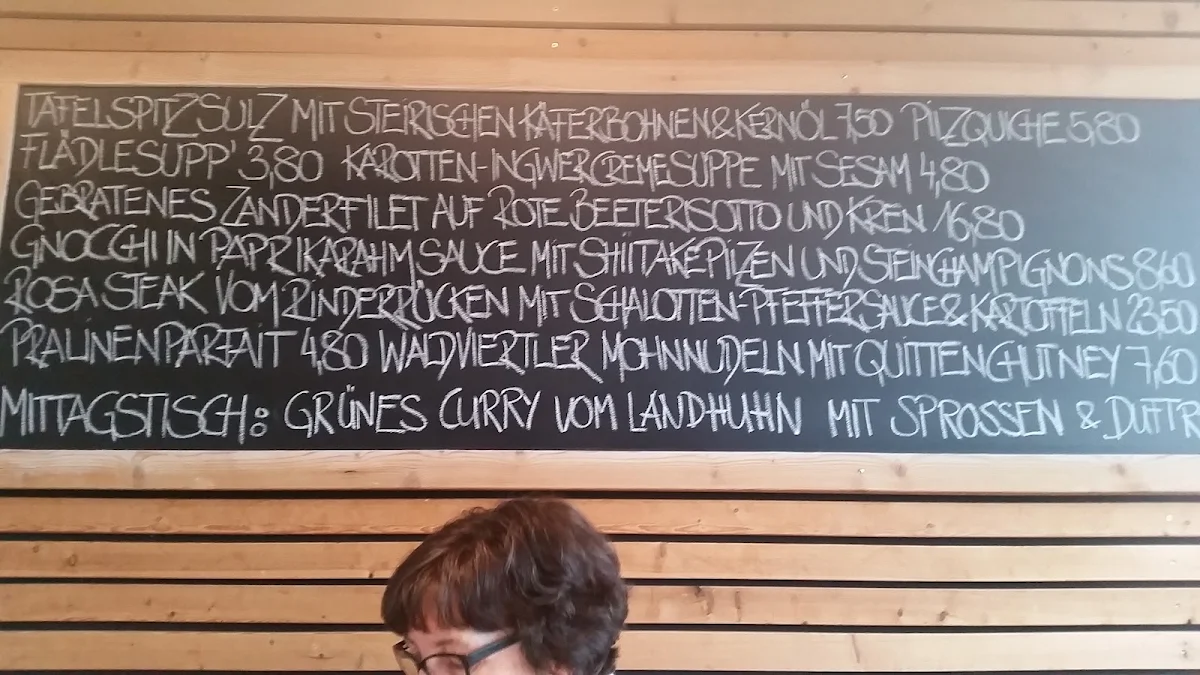 TAFELSPITZSULZ MIT STEIRISCHEN KÄFERBOHNEN & KERNÖL 7,50 PILZQUICHE 5,80
FLÄDLESUPP' 3,80 KAROTTEN-INGWERCREMESUPPE MIT SESAM 4,80
GEBRATENES ZANDERFILET AUF ROTE BEETERISOTTO UND KREN 16,80
GNOCCHI IN PAPRIKARAHMSAUCE MIT SHIITAKEPILZEN UND STEINCHAMPIGNONS 8,60
ROSA STEAK VOM RINDERRÜCKEN MIT SCHALOTTEN-PFEFFERSAUCE & KARTOFFELN 23,50
PRALINENPARFAIT 4,80 WALDVIERTLER MOHNNUDELN MIT QUITTENCHUTNEY 7,60
MITTAGSTISCH: GRÜNES CURRY VOM LANDHUHN MIT SPROSSEN & DUFTR